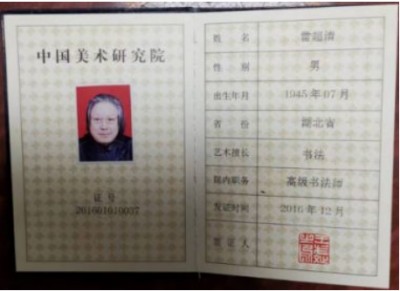 中国美术研究院
证号
201601610037
姓名
性别 男
出生年月 1945年07月
省份 湖北省
艺术擅长 书法
院内职务 高级书法师
发证时间 2016年12月
签证人